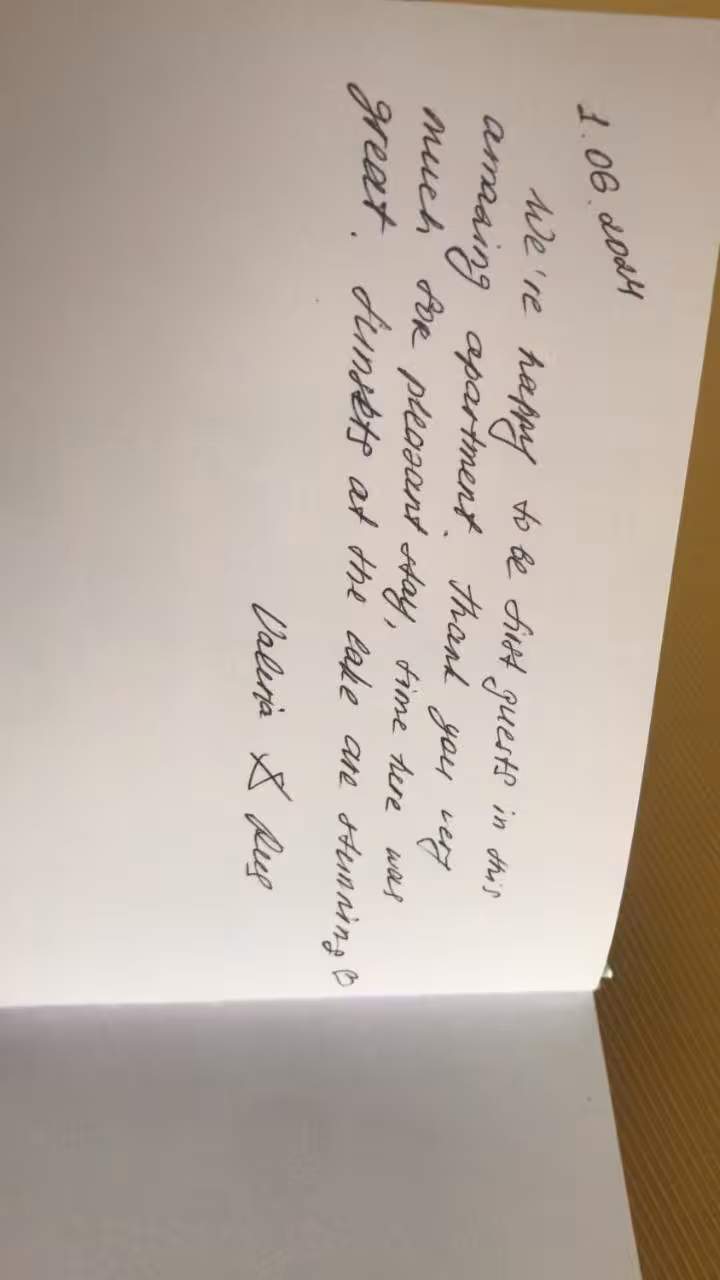 1.06.2024
We're happy to be first guests in this
amazing apartment. Thank you very
much for pleasant stay, time here was
great. Sunsets at the lake are stunning ♡
Valeria &